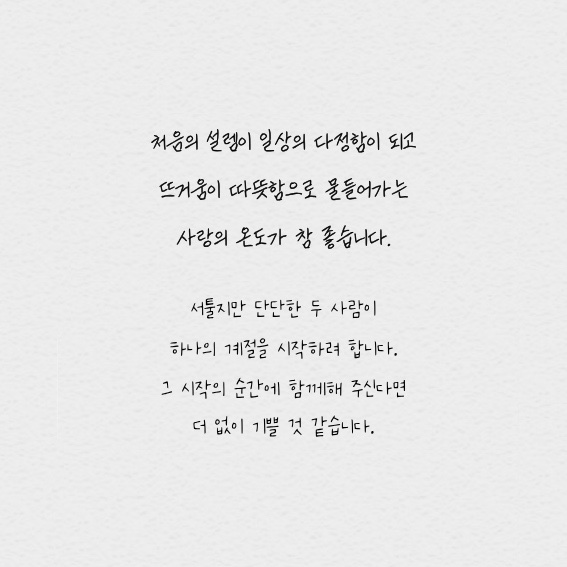 처음의 설렘이 일상의 다정함이 되고
뜨거움이 따뜻함으로 물들어가는
사랑의 온도가 참 좋습니다.
서툴지만 단단한 두 사람이
하나의 계절을 시작하려 합니다.
그 시작의 순간에 함께해 주신다면
더 없이 기쁠 것 같습니다.